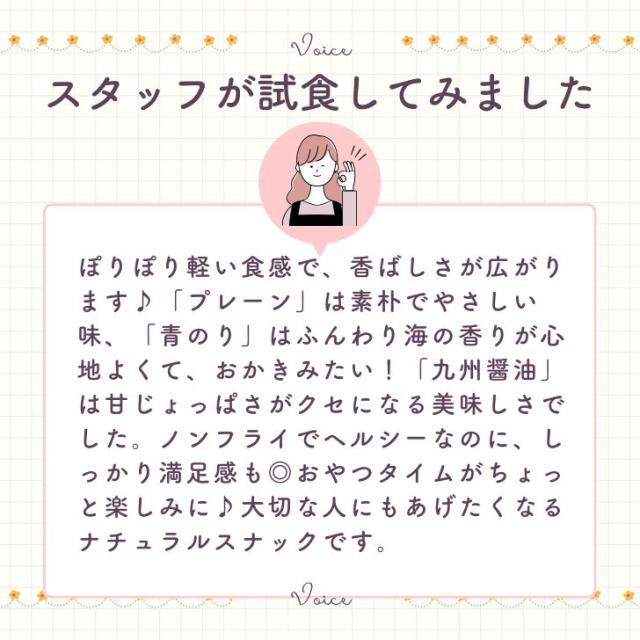 Voice
スタッフが試食してみました
ぽりぽり軽い食感で、香ばしさが広がり
ます♪「プレーン」は素朴でやさしい
味、「青のり」はふんわり海の香りが心
地よくて、おかきみたい！「九州醤油」
は甘じょっぱさがクセになる美味しさで
した。ノンフライでヘルシーなのに、し
っかり満足感も◎おやつタイムがちょっ
と楽しみに♪大切な人にもあげたくなる
ナチュラルスナックです。
Voice